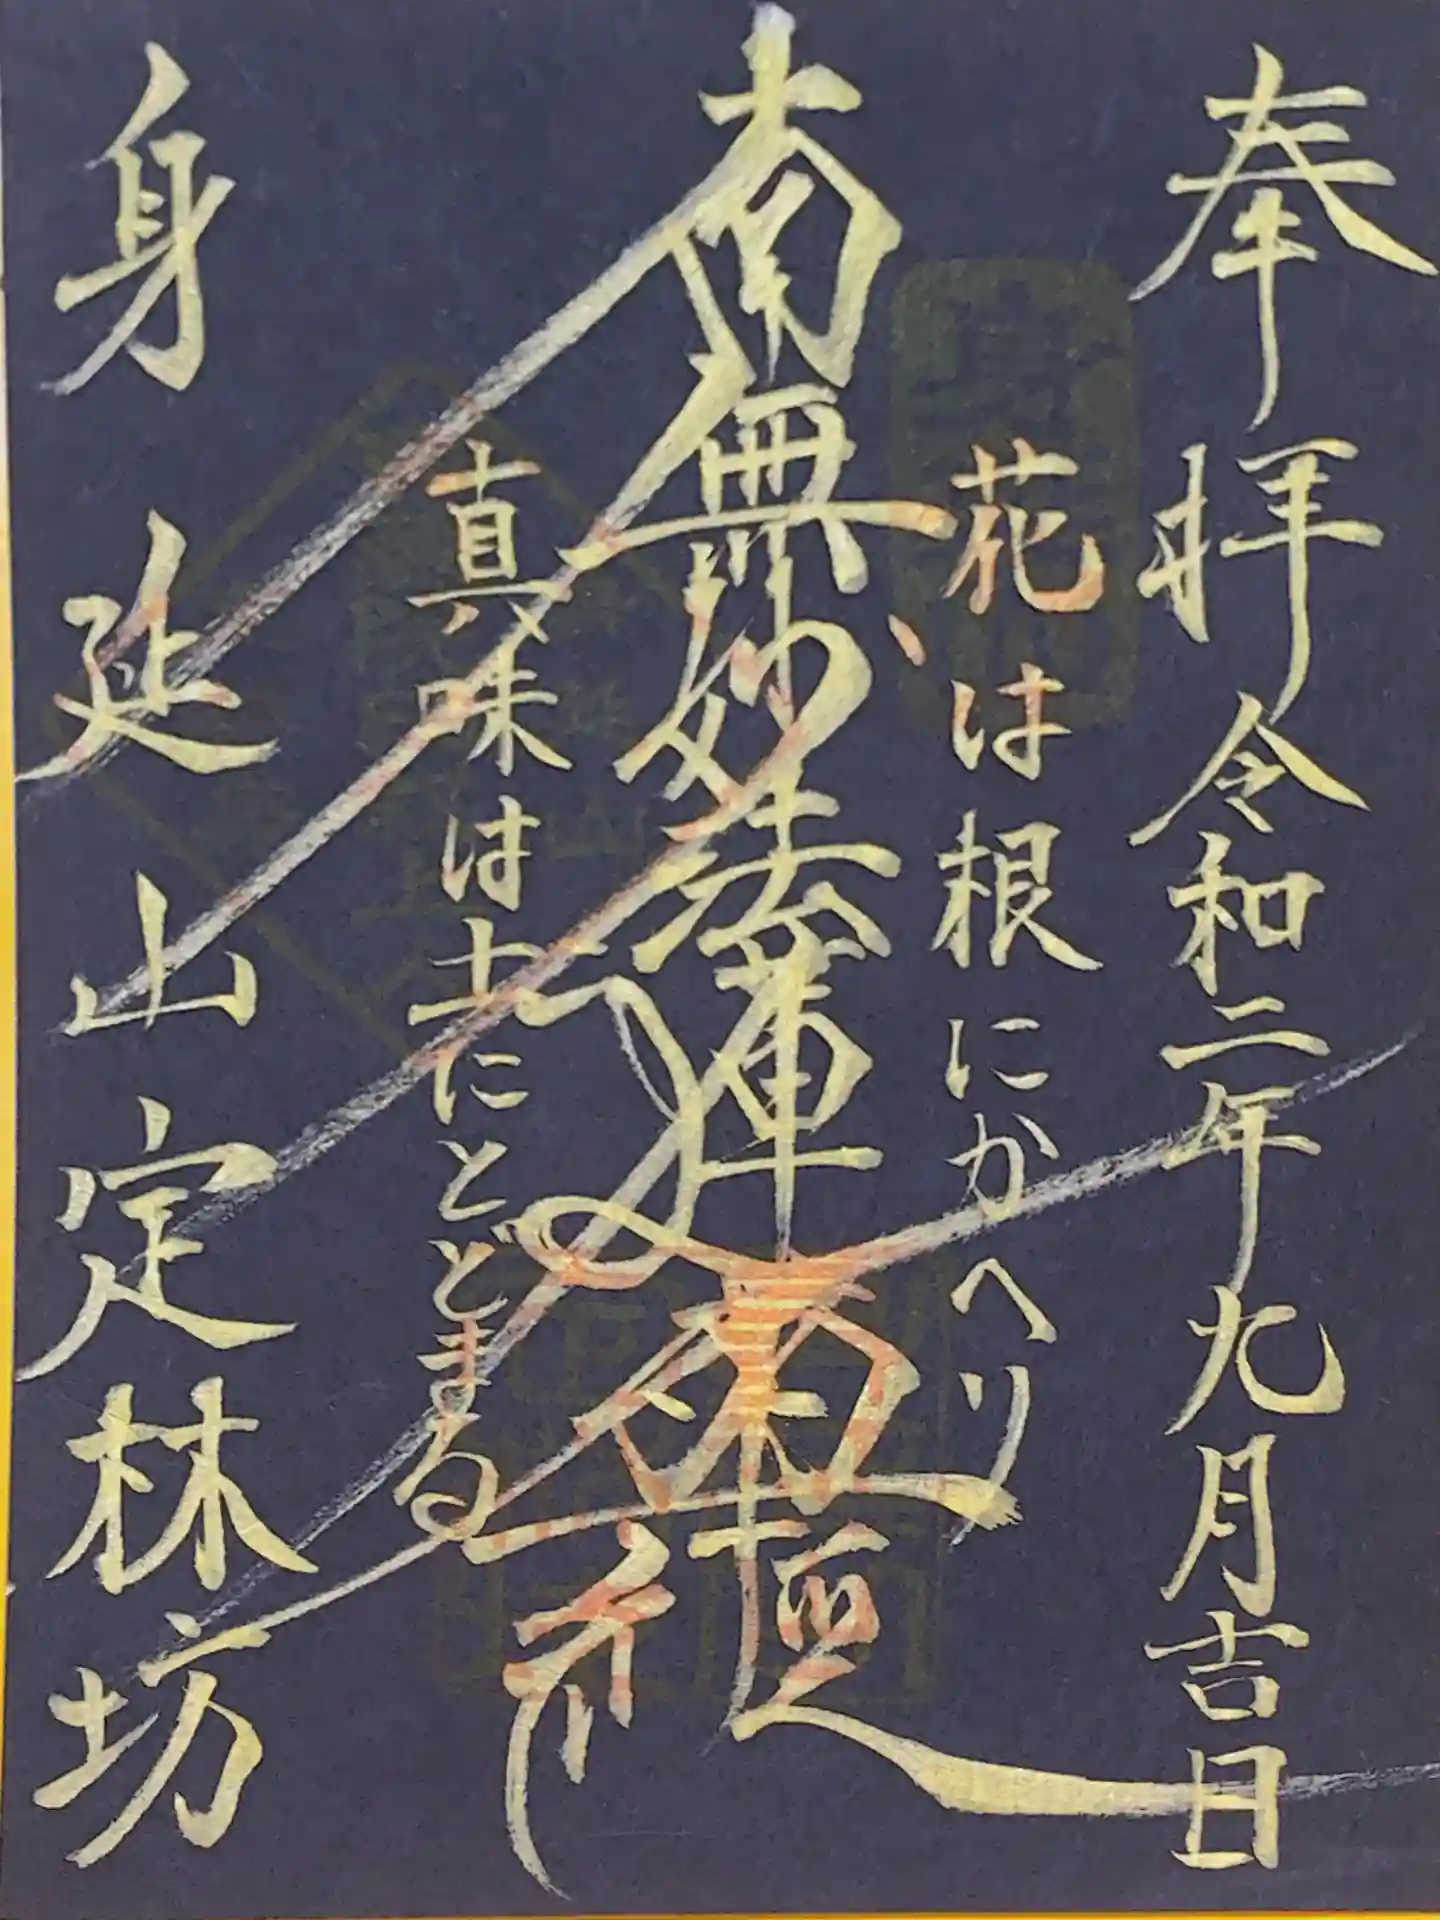 奉拝 令和二年九月吉日
花は根にかへり
南無妙法蓮華経
真味は土にとどまる
身延山 定林坊